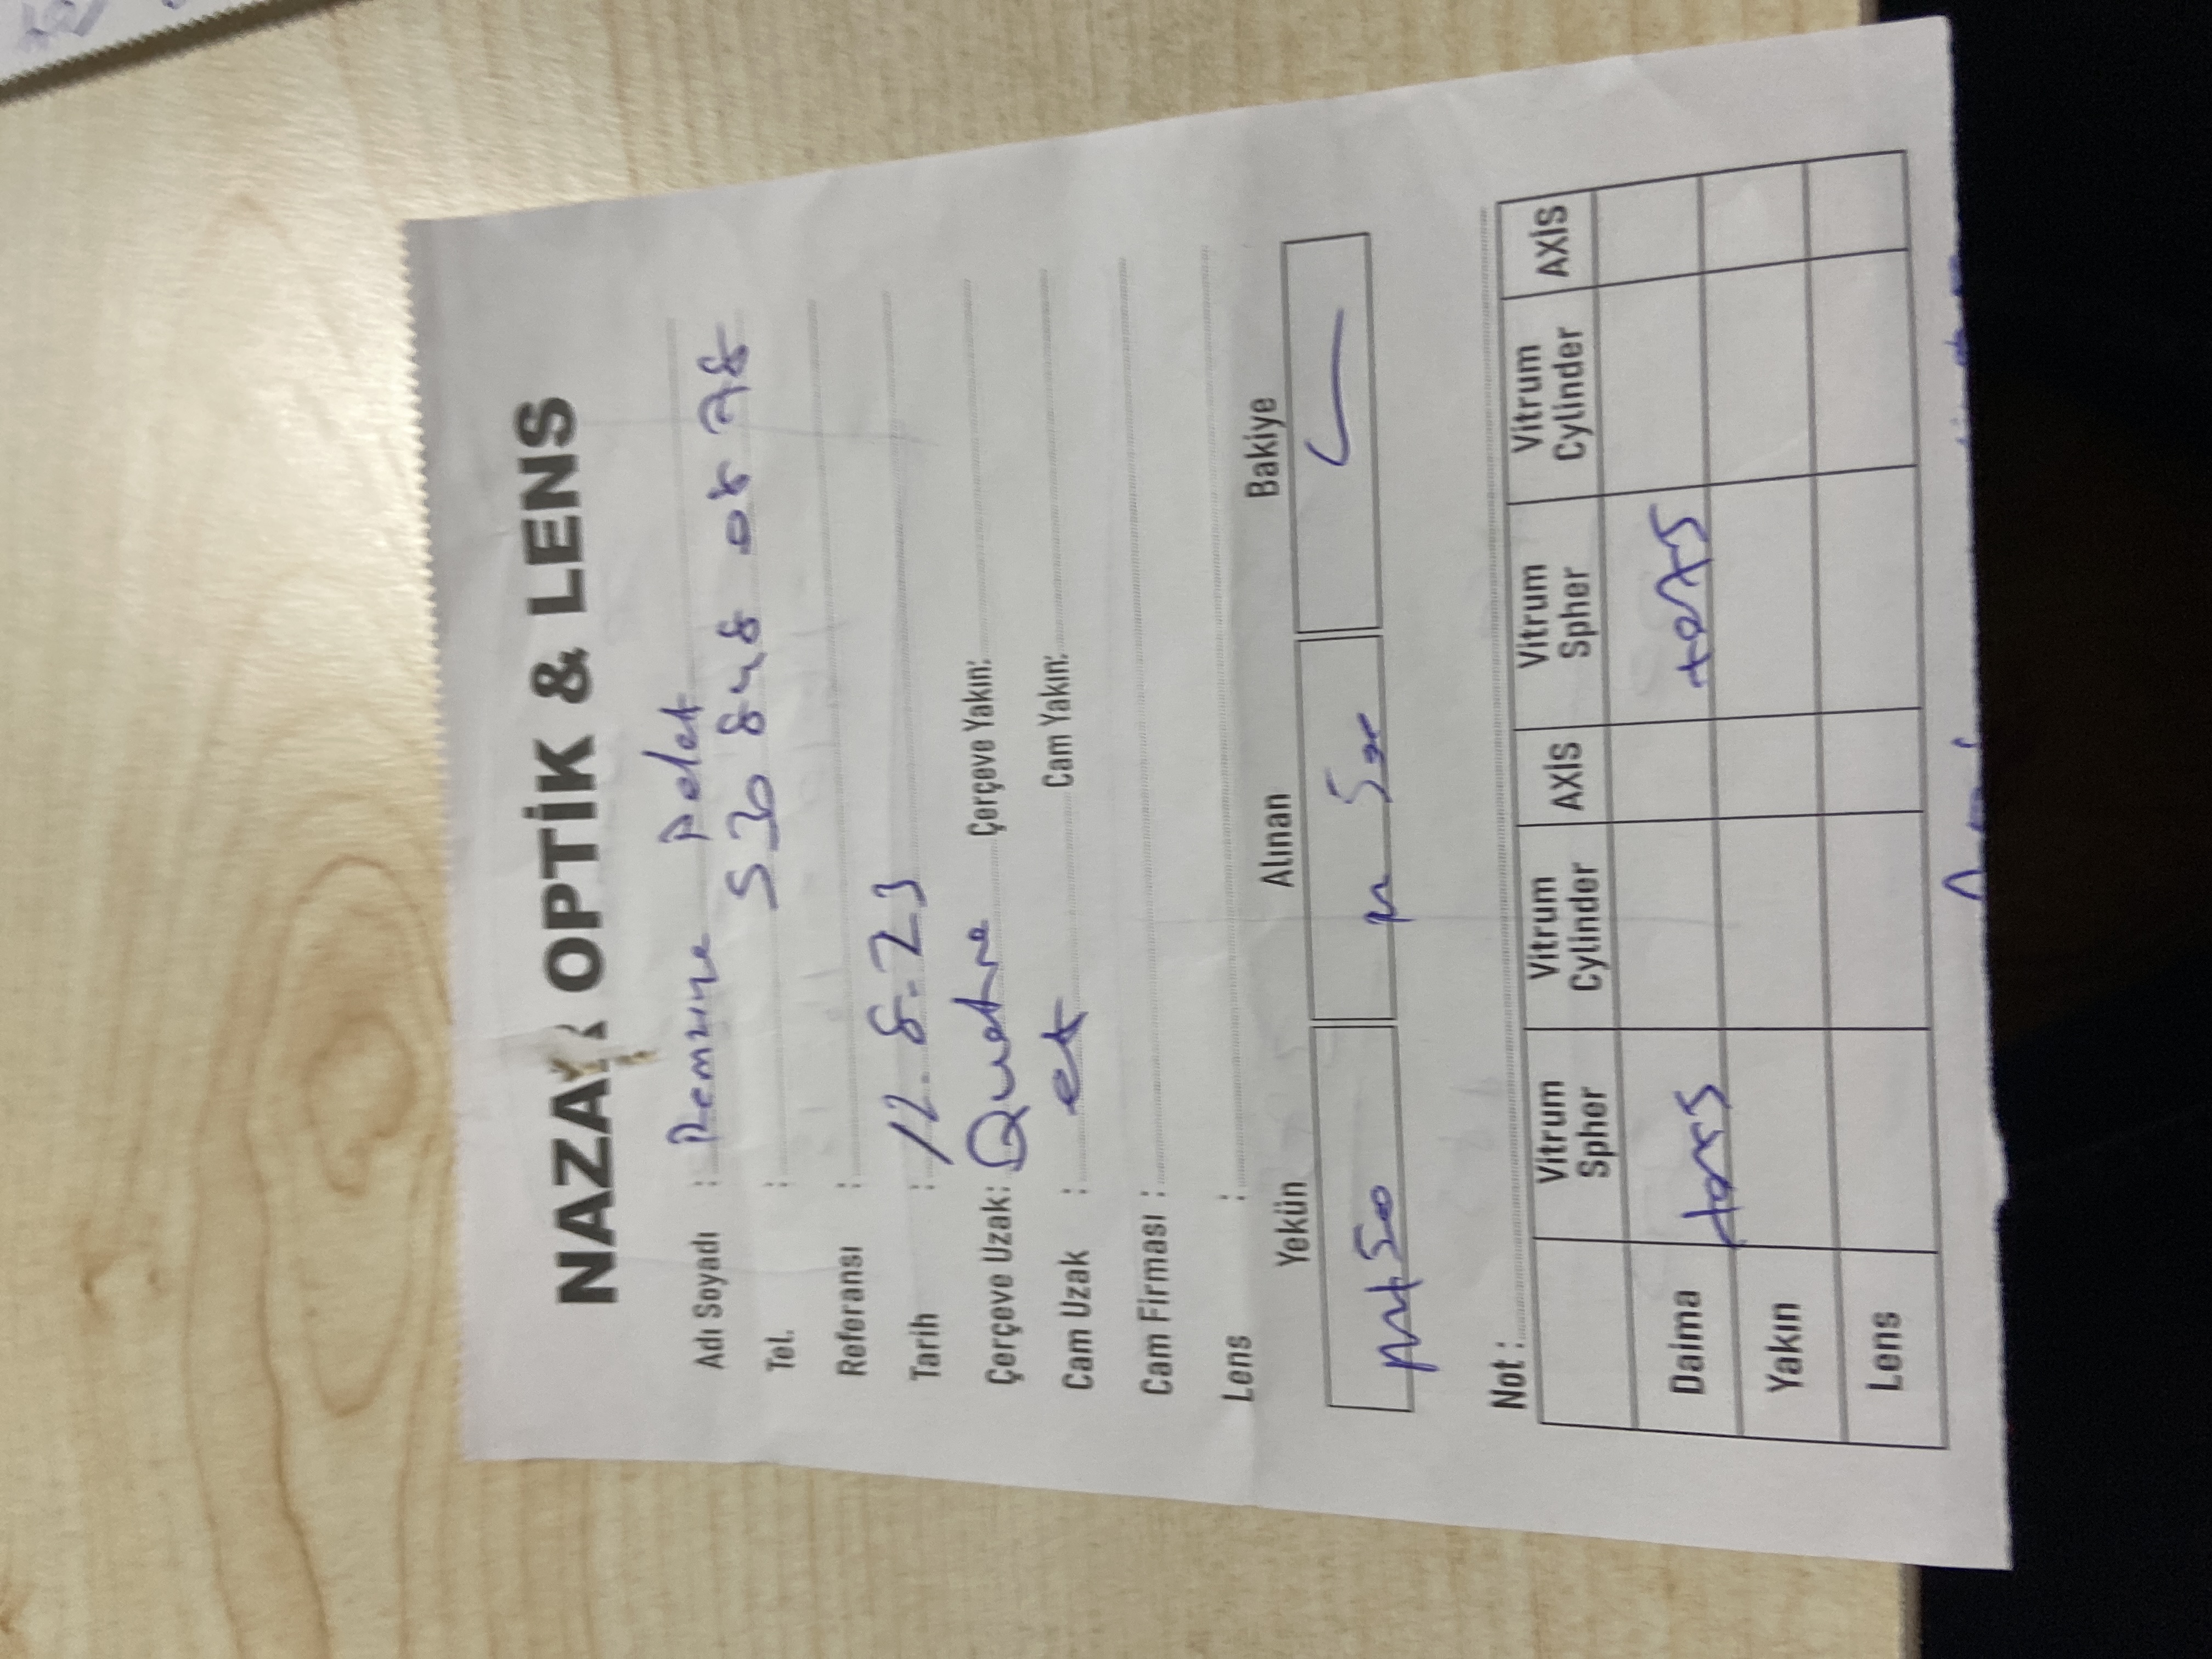 NAZAR OPTİK & LENS
Adı Soyadı : Remziye Polat
Tel. : 530 848 08 78
Referansı :
Tarih : 12.8.23
Çerçeve Uzak: Quatro Çerçeve Yakın:
Cam Uzak : Cam Yakın:
Cam Firması :
Lens :
Yekün Alınan Bakiye
Not :
Vitrum Spher Vitrum Cylinder AXİS Vitrum Spher Vitrum Cylinder AXİS
Daima +075 +075
Yakın
Lens